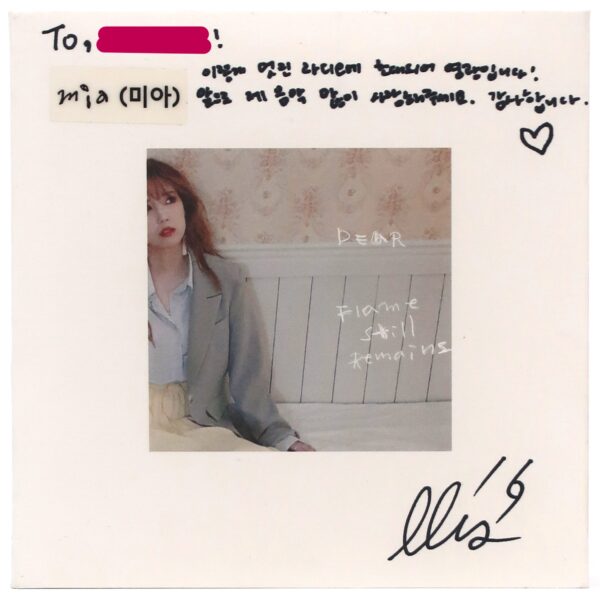 To, !
이렇게 멋진 라디오에 초대되어 영광입니다!
mia (미아) 앞으로 제 음악 많이 사랑해주세요. 감사합니다.
DEAR
Flame
still
Remains